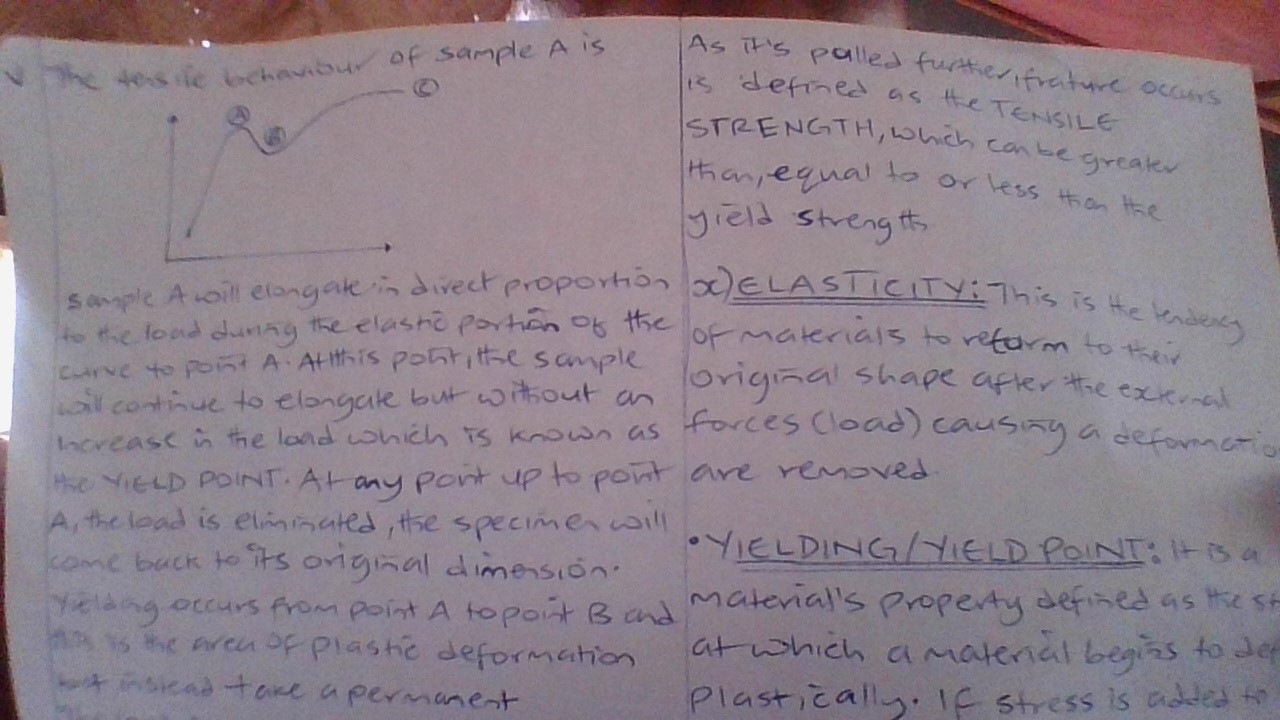 The tensile behaviour of sample A is
A
B
C
Sample A will elongate in direct proportion
to the load during the elastic portion of the
curve to point A. At this point, the sample
will continue to elongate but without an
increase in the load which is known as
the YIELD POINT. At any point up to point
A, the load is eliminated, the specimen will
come back to its original dimension.
Yielding occurs from point A to point B and
this is the area of plastic deformation
instead take a permanent
As it's pulled further, frature occurs
is defined as the TENSILE
STRENGTH, which can be greater
than, equal to or less than the
yield strength
x) ELASTICITY: This is the tendency
of materials to reform to their
original shape after the external
forces (load) causing a deformatio
are removed.
• YIELDING/YIELD POINT: It is a
material's property defined as the st
at which a material begins to def
plastically. If stress is added to